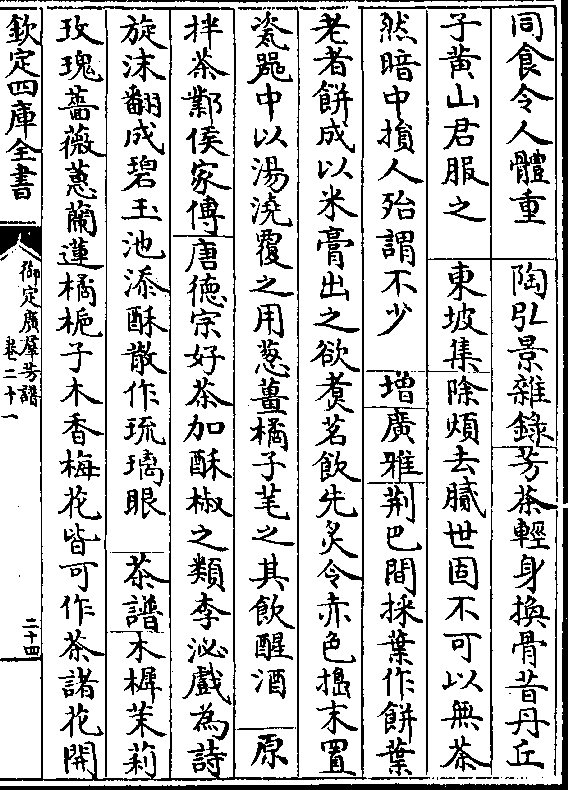 同食令人體重　陶弘景雜錄芳茶輕身換骨昔丹丘
子黄山君服之　東坡集除煩去膩世固不可以無茶
然暗中損人殆謂不少　增廣雅荆巴間採葉作餅葉
老者餅成以米膏出之欲煑茗飲先炙令赤色搗末置
瓷噐中以湯澆覆之用葱薑橘子芼之其飲醒酒　原
拌茶鄴侯家傅唐德宗好茶加酥椒之類李泌戲為詩
旋沫翻成碧玉池添酥散作琉璃眼　茶譜木樨茉莉
玫瑰薔薇蕙蘭蓮橘梔子木香梅花皆可作茶諸花開
欽定四庫全書
御定廣羣芳譜
卷二十一
二十四